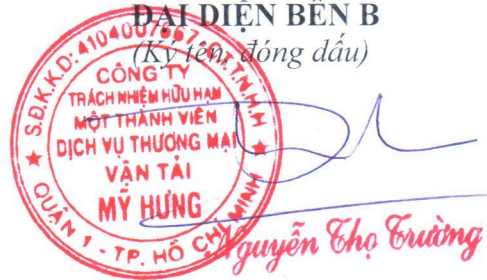 ĐẠI DIỆN BÊN B
(Ký tên, đóng dấu)
S.Đ.K.K.D: 4104007667 - C.T.T.N.H.H
CÔNG TY
TRÁCH NHIỆM HỮU HẠN
MỘT THÀNH VIÊN
DỊCH VỤ THƯƠNG MẠI
VẬN TẢI
MỸ HƯNG
QUẬN 1 - TP. HỒ CHÍ MINH
Nguyễn Thọ Trường